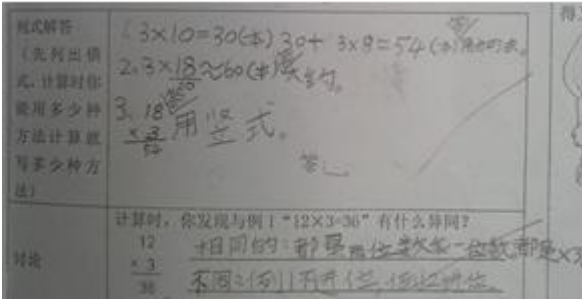 列式解答
(先列出横
式,计算时你
能用多少种
方法计算就
写多少种方
法)
1. 3×10=30(本) 30+ 3×8=54(本)
2. 3×18≈60(本)
20
3. 18 用竖式。
× 3
54
答
计算时,你发现与例1“12×3=36”有什么异同?
讨论
12
× 3
36
相同的:都是两位数乘一位数,都是×3
不同:例1不进位,